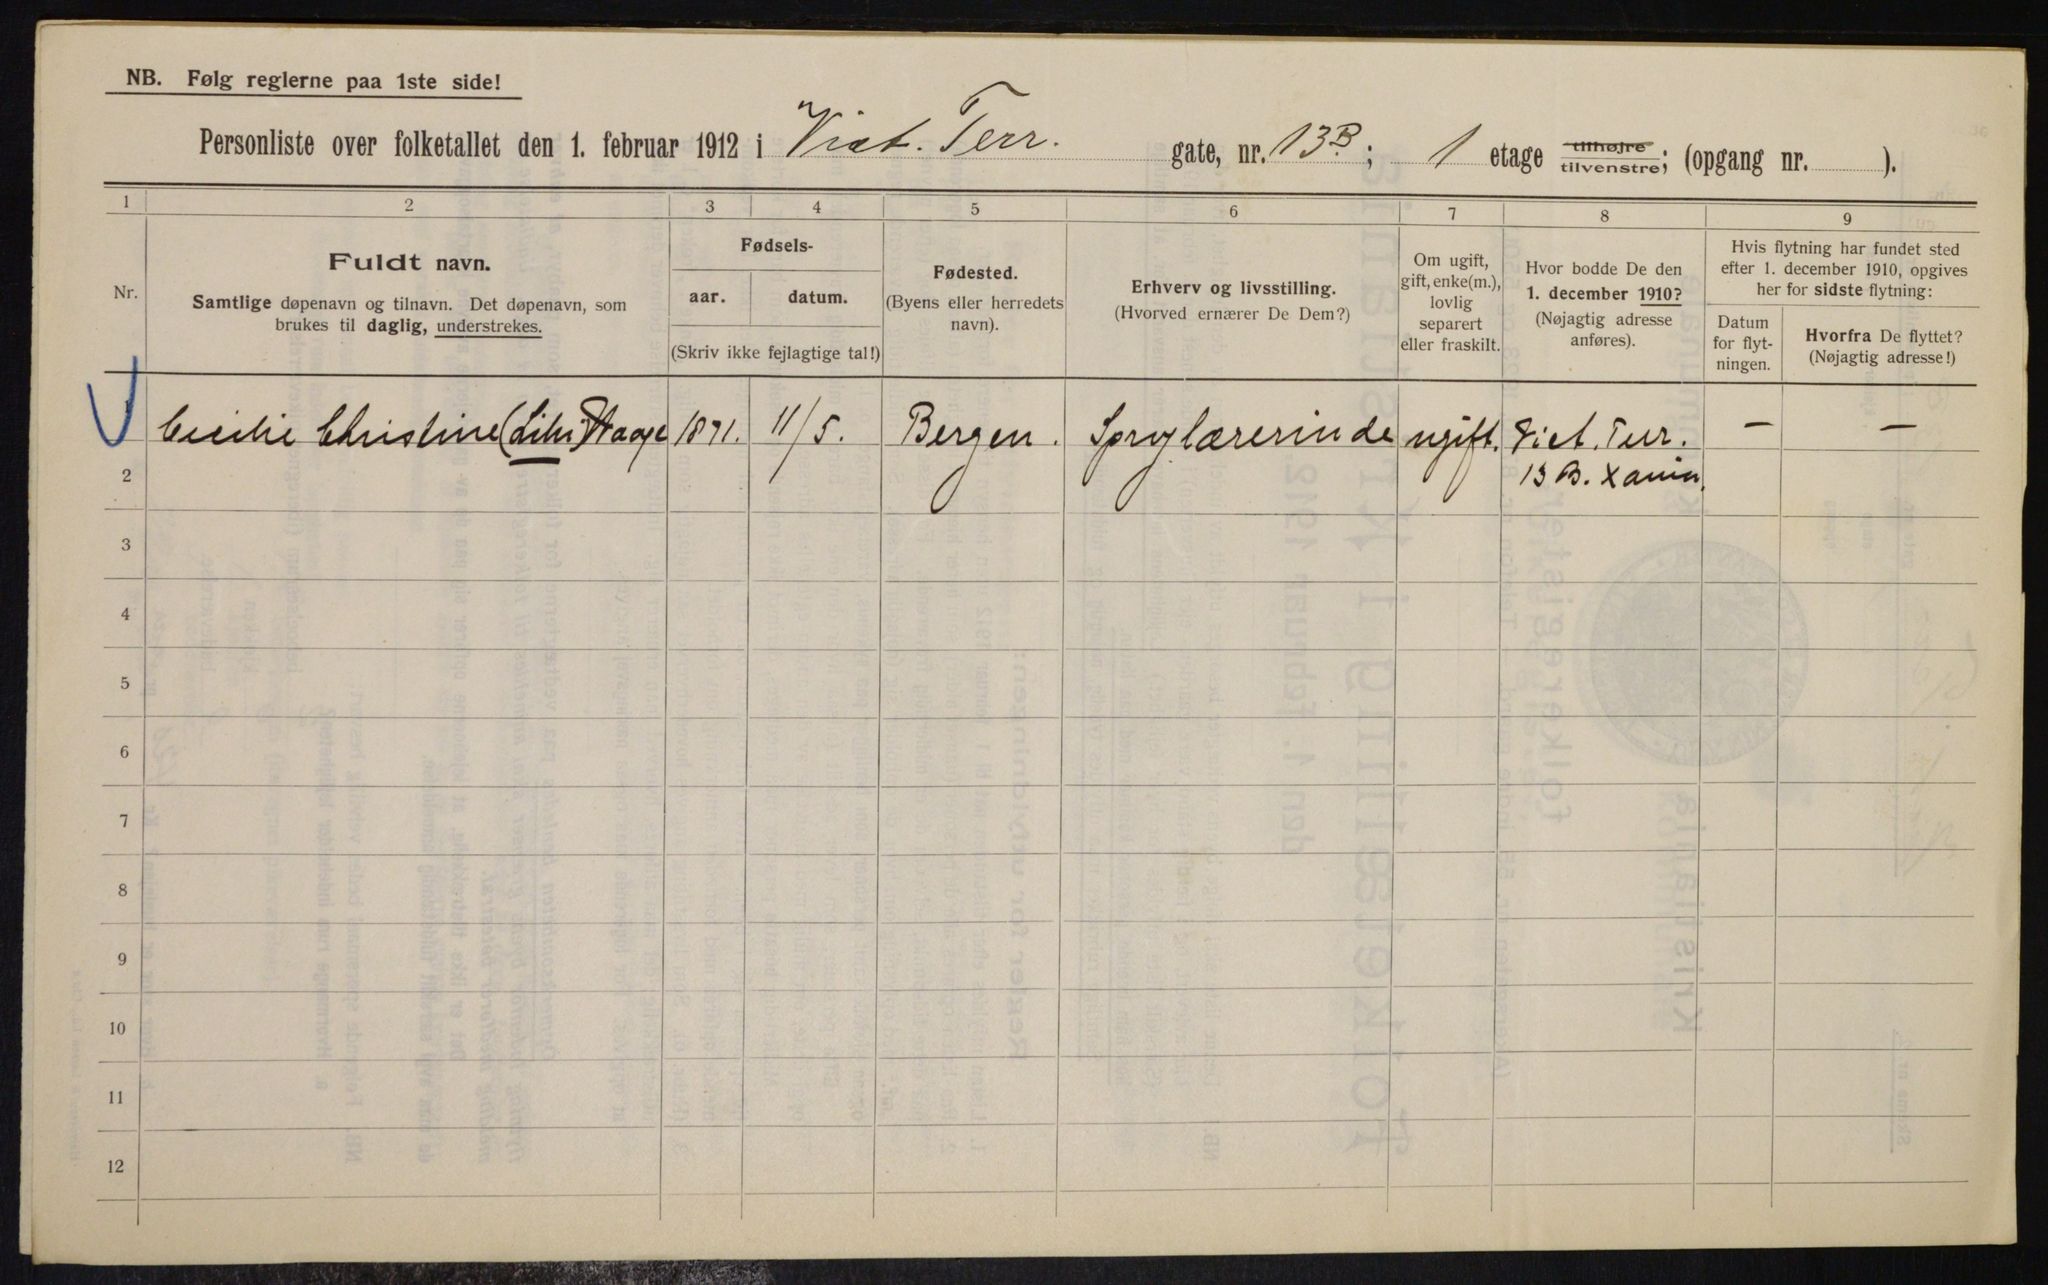 NB. Følg reglerne paa 1ste side!
Personliste over folketallet den 1. februar 1912 i Vict. Terr. gate, nr. 13B; 1 etage tilhøjre/tilvenstre; (opgang nr. ).
1 2 3 4 5 6 7 8 9
Nr.
Fuldt navn.
Samtlige døpenavn og tilnavn. Det døpenavn, som
brukes til daglig, understrekes.
Fødsels-
aar. datum.
(Skriv ikke fejlagtige tal!)
Fødested.
(Byens eller herredets
navn).
Erhverv og livsstilling.
(Hvorved ernærer De Dem?)
Om ugift,
gift, enke(m.),
lovlig
separert
eller fraskilt.
Hvor bodde De den
1. december 1910?
(Nøjagtig adresse
anføres).
Hvis flytning har fundet sted
efter 1. december 1910, opgives
her for sidste flytning:
Datum
for flyt-
ningen.
Hvorfra De flyttet?
(Nøjagtig adresse!)
Cecilie Christine (Lihi) 1871. 11/5. Bergen. Sproglærerinde ugift. Vict. Terr. — —
2 13 B. Xania.
3
4
5
6
7
8
9
10
11
12